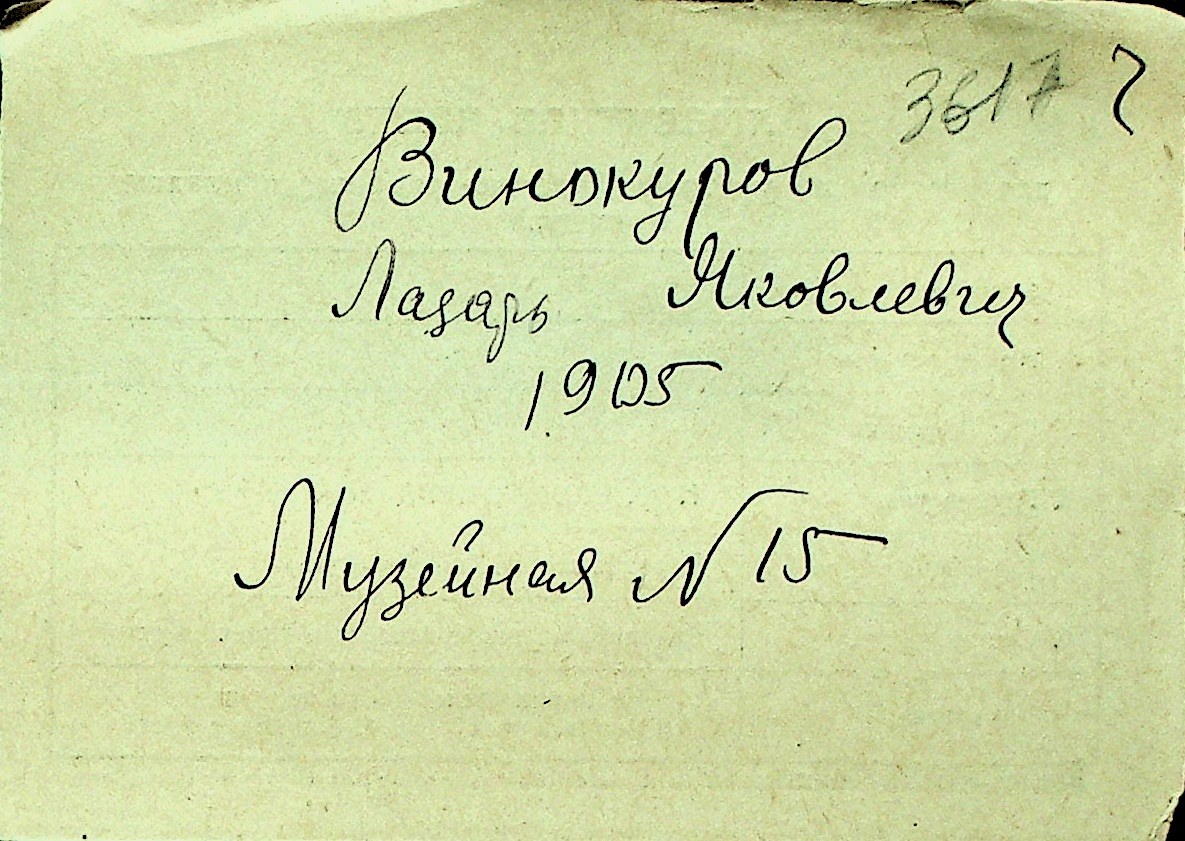 3617
Винокуров
Лазарь Яковлевич
1905
Музейная N 15